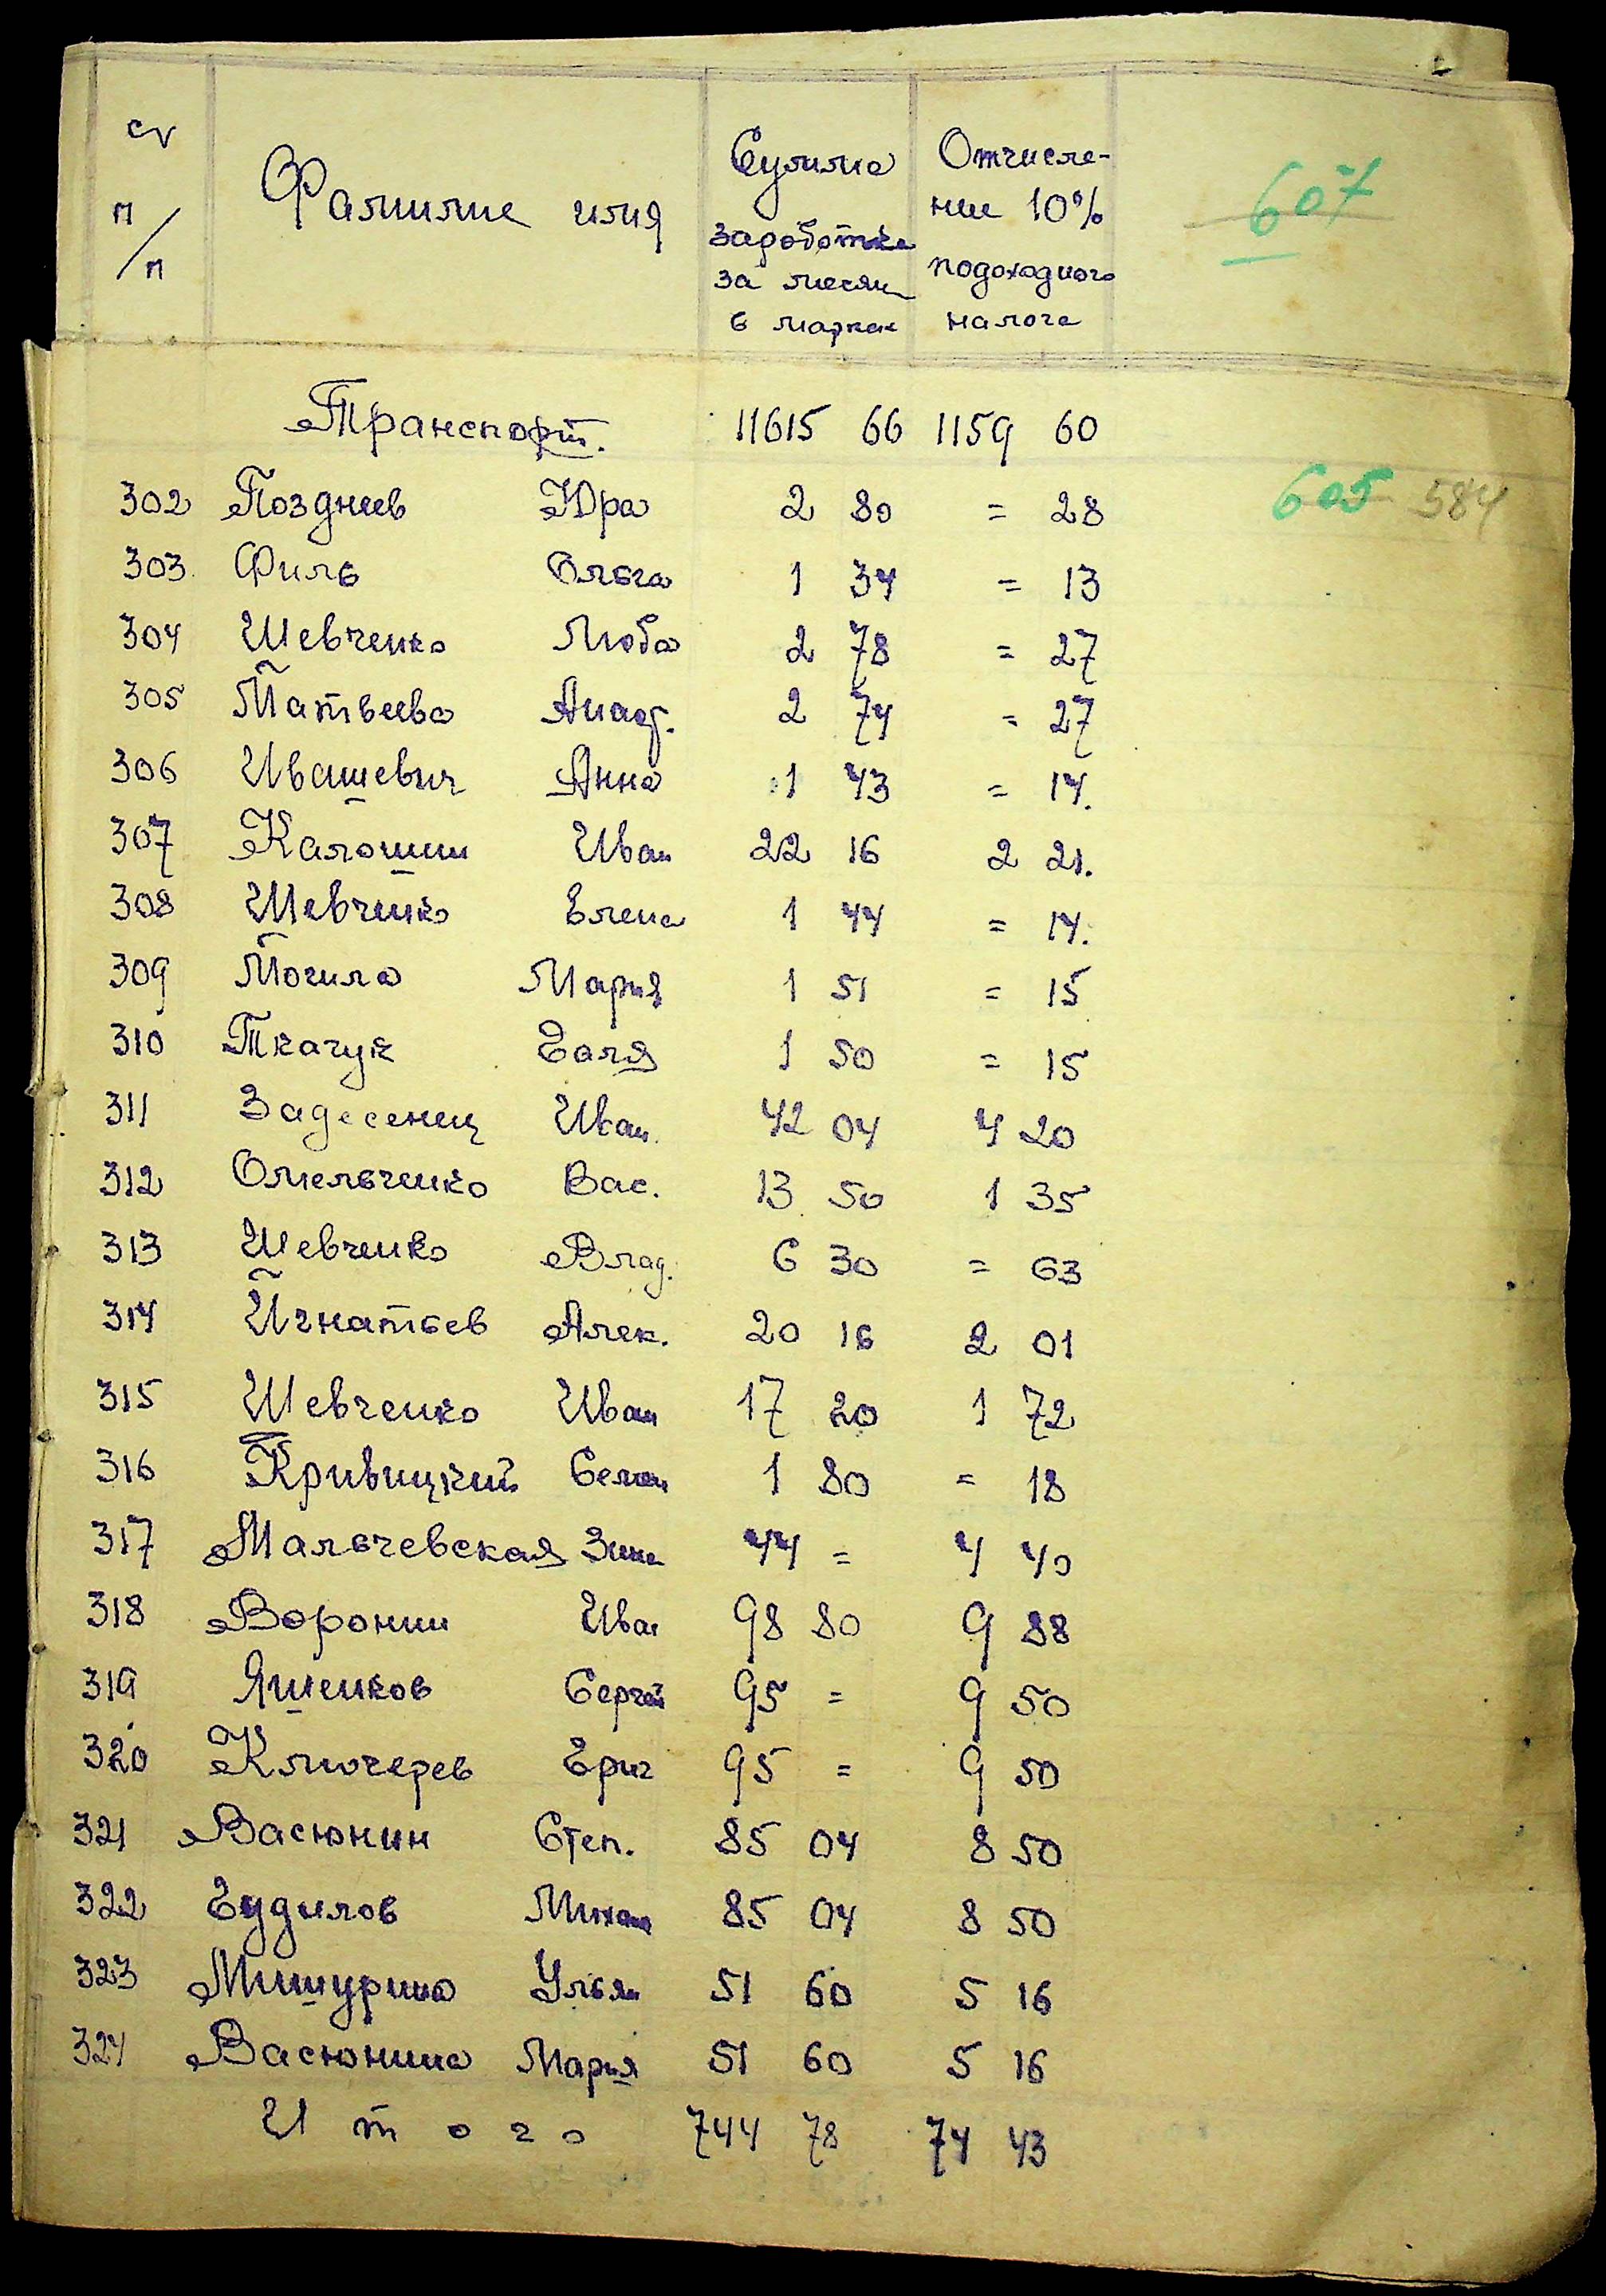 сч
п/п
Фамилие имя
Сумма
заработка
за месяц
в марках
Отчисле-
ние 10%
подоходного
налога
607
Транспорт. 11615 66 1159 60
302 Позднеев Юра 2 80 = 28 605 584
303 Филь Ольга 1 34 = 13
304 Шевченко Люба 2 78 = 27
305 Матвеева 2 74 = 27
306 Ивашевич Анна 1 43 = 14.
307 Калошин Иван 22 16 2 21.
308 Шевченко Елена 1 44 = 14.
309 Могила Мария 1 51 = 15
310 Ткачук Галя 1 50 = 15
311 Задесенец Иван. 42 04 4 20
312 Омельченко Вас. 13 50 1 35
313 Шевченко Влад. 6 30 = 63
314 Игнатьев Алек. 20 16 2 01
315 Шевченко Иван 17 20 1 72
316 Кривицкий Семен 1 80 = 18
317 Мальчевская Зина 44 = 4 40
318 Воронин Иван 98 80 9 88
319 Яшенков Сергей 95 = 9 50
320 Ключерев 95 = 9 50
321 Васюнин Степ. 85 04 8 50
322 Гудилов Михаил 85 04 8 50
323 Мишурина Ульян 51 60 5 16
324 Васюнина Мария 51 60 5 16
Итого 744 78 74 43